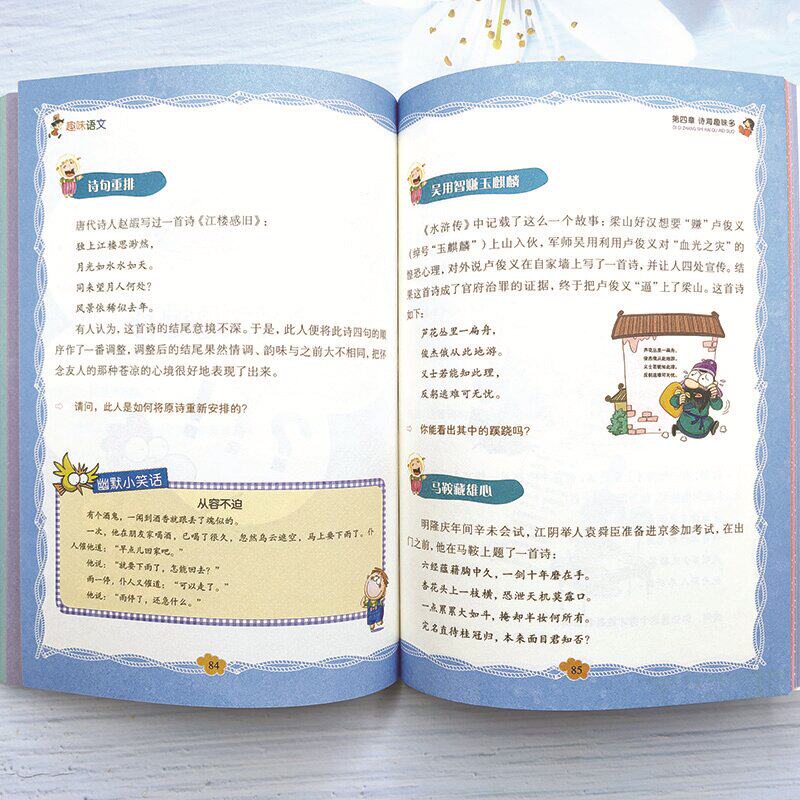 趣味语文
诗句重排
唐代诗人赵嘏写过一首诗《江楼感旧》：
独上江楼思渺然，
月光如水水如天。
同来望月人何处？
风景依稀似去年。
有人认为，这首诗的结尾意境不深。于是，此人便将此诗四句的顺
序作了一番调整，调整后的结尾果然情调、韵味与之前大不相同，把怀
念友人的那种苍凉的心境很好地表现了出来。
请问，此人是如何将原诗重新安排的？
幽默小笑话
从容不迫
有个酒鬼，一闻到酒香就跟丢了魂似的。
一次，他在朋友家喝酒，已喝了很久，忽然乌云遮空，马上要下雨了。仆
人催他道：“早点儿回家吧。”
他说：“就要下雨了，怎能回去？”
雨一停，仆人又催道：“可以走了。”
他说：“雨停了，还急什么。”
84
第四章 诗海趣味多
DI SI ZHANG SHI HAI QU WEI DUO
吴用智赚玉麒麟
《水浒传》中记载了这么一个故事：梁山好汉想要“赚”卢俊义
（绰号“玉麒麟”）上山入伙，军师吴用利用卢俊义对“血光之灾”的
惶恐心理，对外说卢俊义在自家墙上写了一首诗，并让人四处宣传。结
果这首诗成了官府治罪的证据，终于把卢俊义“逼”上了梁山。这首诗
如下：
芦花丛里一扁舟，
俊杰俄从此地游。
义士若能知此理，
反躬逃难可无忧。
芦花丛里一扁舟，
俊杰俄从此地游。
义士若能知此理，
反躬逃难可无忧。
你能看出其中的蹊跷吗？
马鞍藏雄心
明隆庆年间辛未会试，江阴举人袁舜臣准备进京参加考试，在出
门之前，他在马鞍上题了一首诗：
六经蕴藉胸中久，一剑十年磨在手。
杏花头上一枝横，恐泄天机莫露口。
一点累累大如斗，掩却半妆何所有。
完名直待桂冠归，本来面目君知否？
85